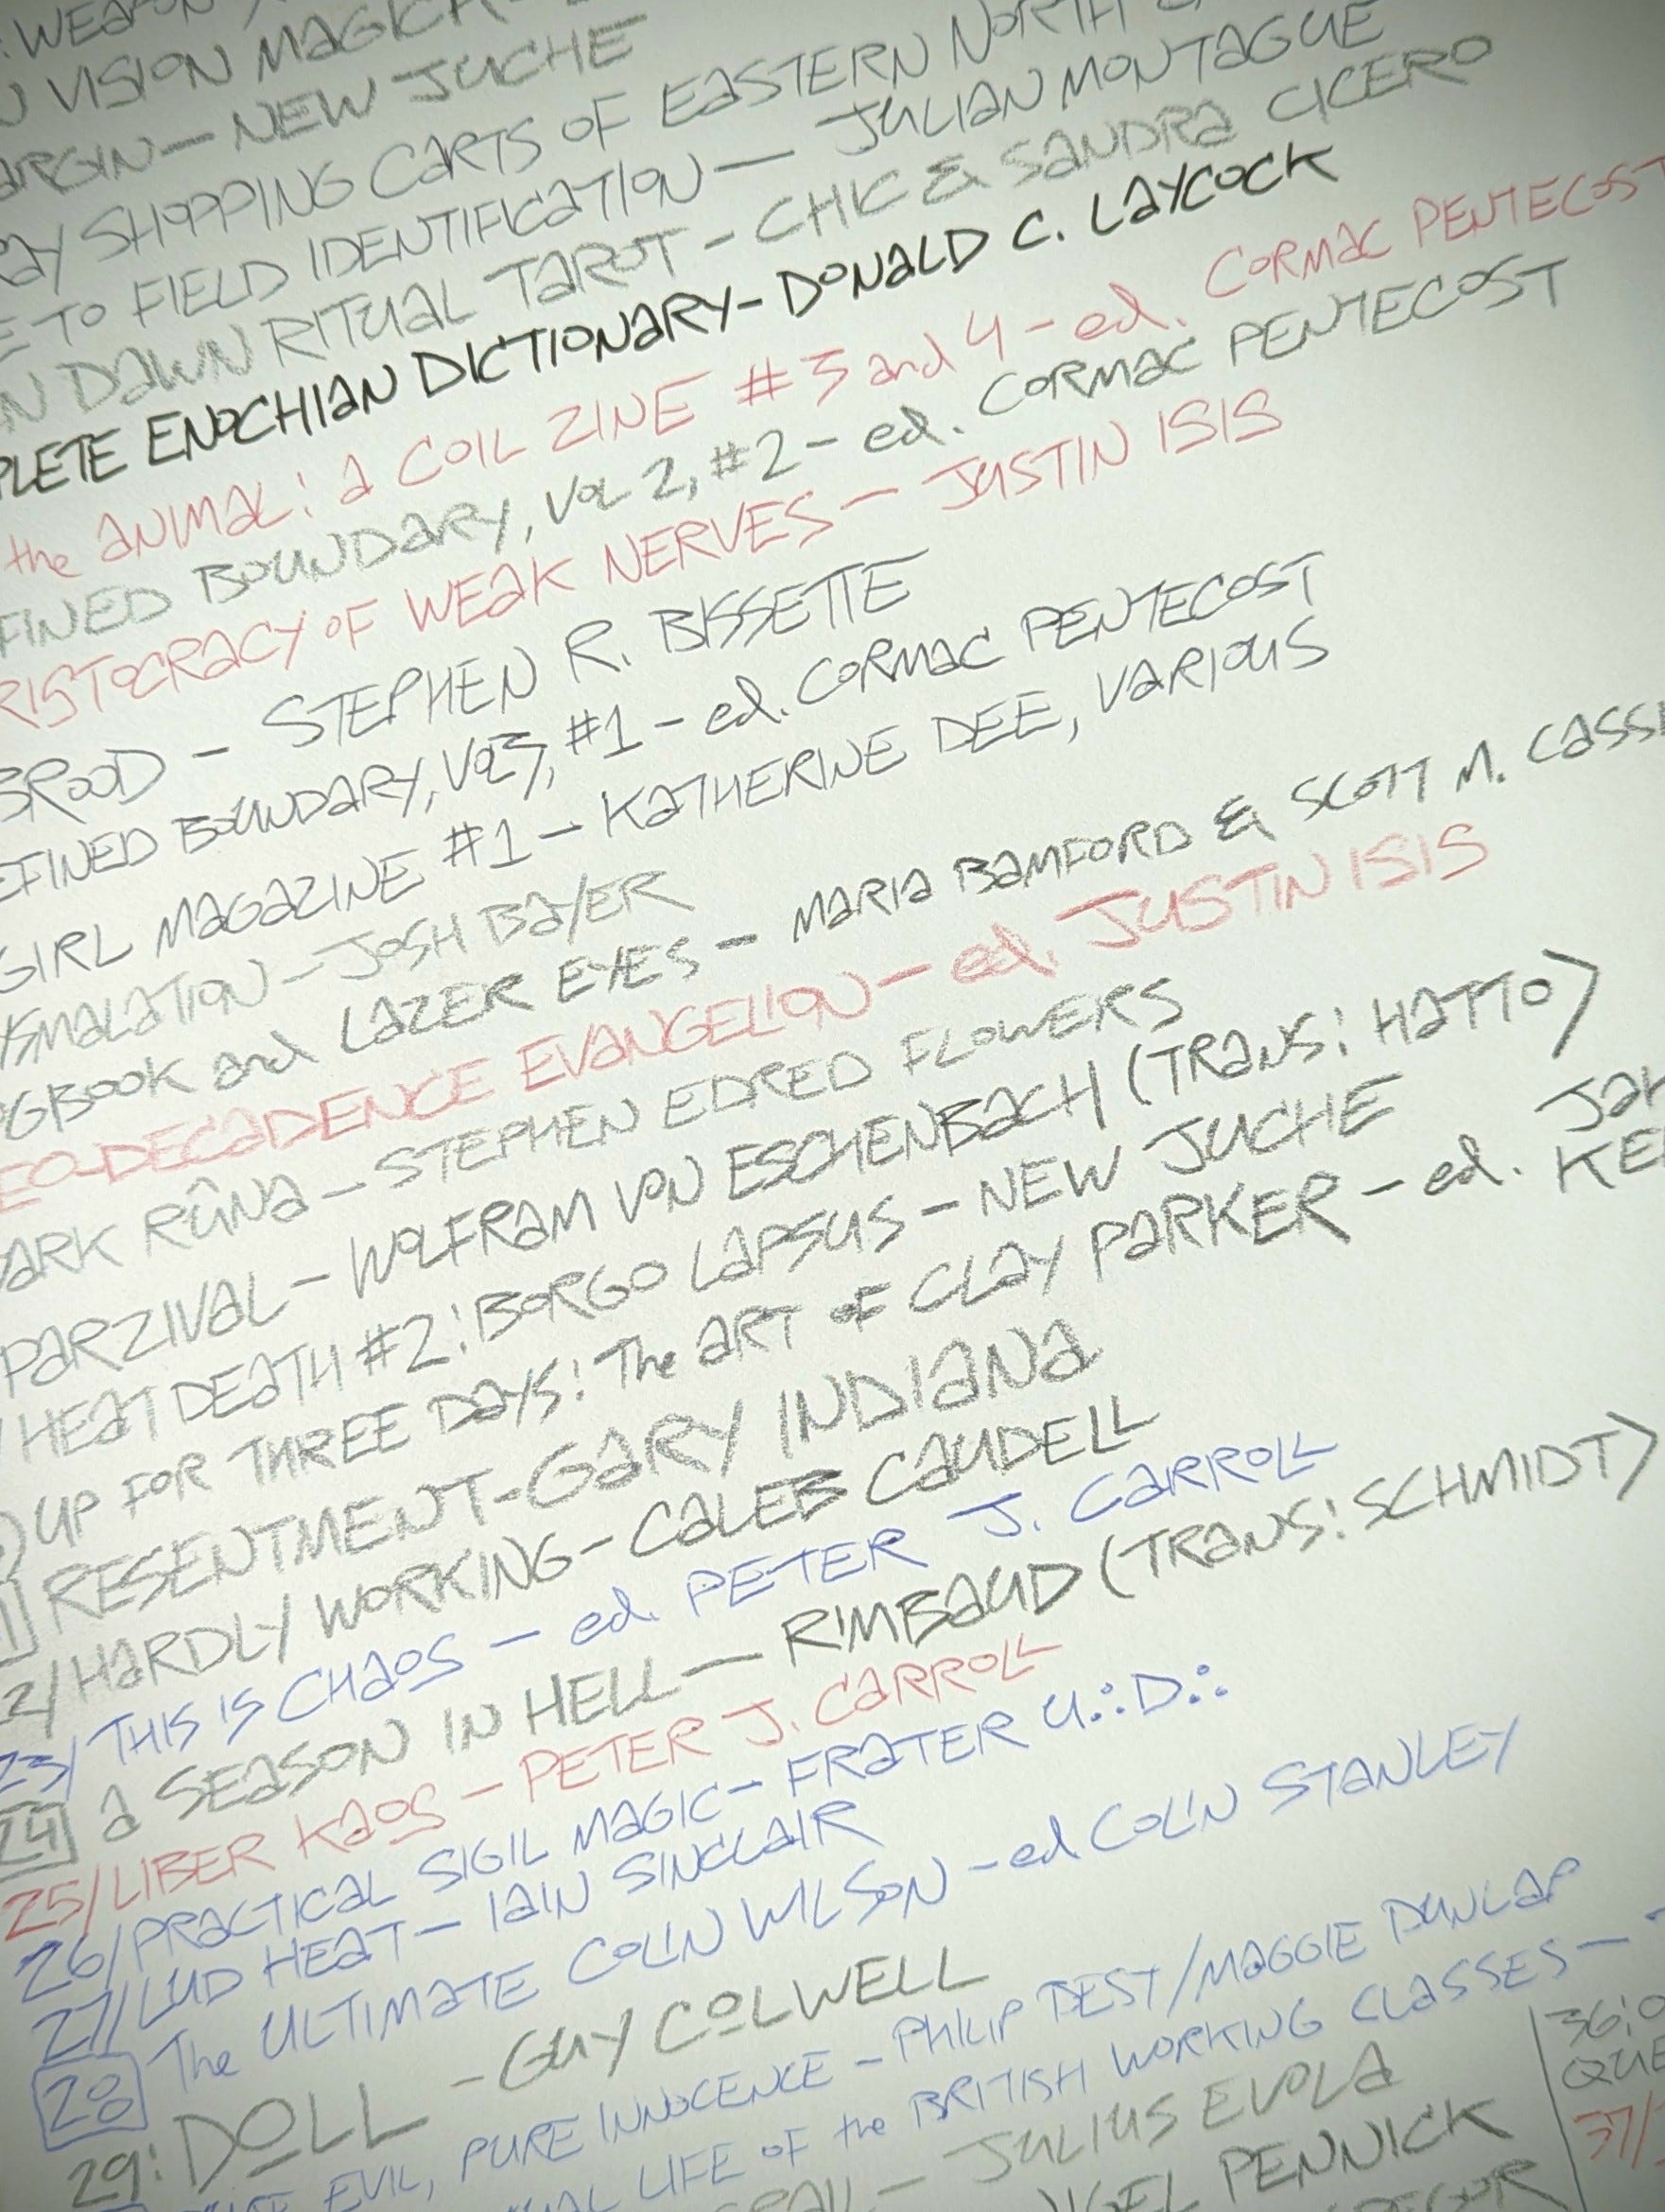 VISION MAGICK
ARGIN — NEW JUCHE
AY SHOPPING CARTS OF EASTERN NORTH
E TO FIELD IDENTIFICATION — JULIAN MONTAGUE
N DAWN RITUAL TAROT - CHIC & SANDRA CICERO
PLETE ENOCHIAN DICTIONARY - DONALD C. LAYCOCK
the ANIMAL: a COIL ZINE #3 and 4 - ed. CORMAC PENTECOST
FINED BOUNDARY, VOL 2, #2 - ed. CORMAC PENTECOST
RISTOCRACY OF WEAK NERVES — JUSTIN ISIS
BROOD - STEPHEN R. BISSETTE
EFINED BOUNDARY, VOL 3, #1 - ed. CORMAC PENTECOST
GIRL MAGAZINE #1 - KATHERINE DEE, VARIOUS
SMALATION - JOSH BAYER
GBOOK and LAZER EYES - MARIA BAMFORD & SCOTT M. CASSI
EO-DECADENCE EVANGELION - ed. JUSTIN ISIS
ARK RÛNA - STEPHEN EDRED FLOWERS
PARZIVAL - WOLFRAM VON ESCHENBACH (TRANS: HATTO)
HEAT DEATH #2: BORGO LAPSUS - NEW JUCHE
UP FOR THREE DAYS: The ART OF CLAY PARKER - ed. JAK
KE
RESENTMENT - GARY INDIANA
2/ HARDLY WORKING - CALEB CAUDELL
23/ THIS IS CHAOS - ed. PETER J. CARROLL
24 a SEASON IN HELL — RIMBAUD (TRANS: SCHMIDT)
25/ LIBER KAOS - PETER J. CARROLL
26/ PRACTICAL SIGIL MAGIC - FRATER U∴D∴
27/ LUD HEAT - IAIN SINCLAIR
28 The ULTIMATE COLIN WILSON - ed COLIN STANLEY
29: DOLL - GUY COLWELL
EVIL, PURE INNOCENCE - PHILIP BEST/MAGGIE DUNLAP
UAL LIFE OF the BRITISH WORKING CLASSES -
- JULIUS EVOLA
IGEL PENNICK
36:
QUE
37/